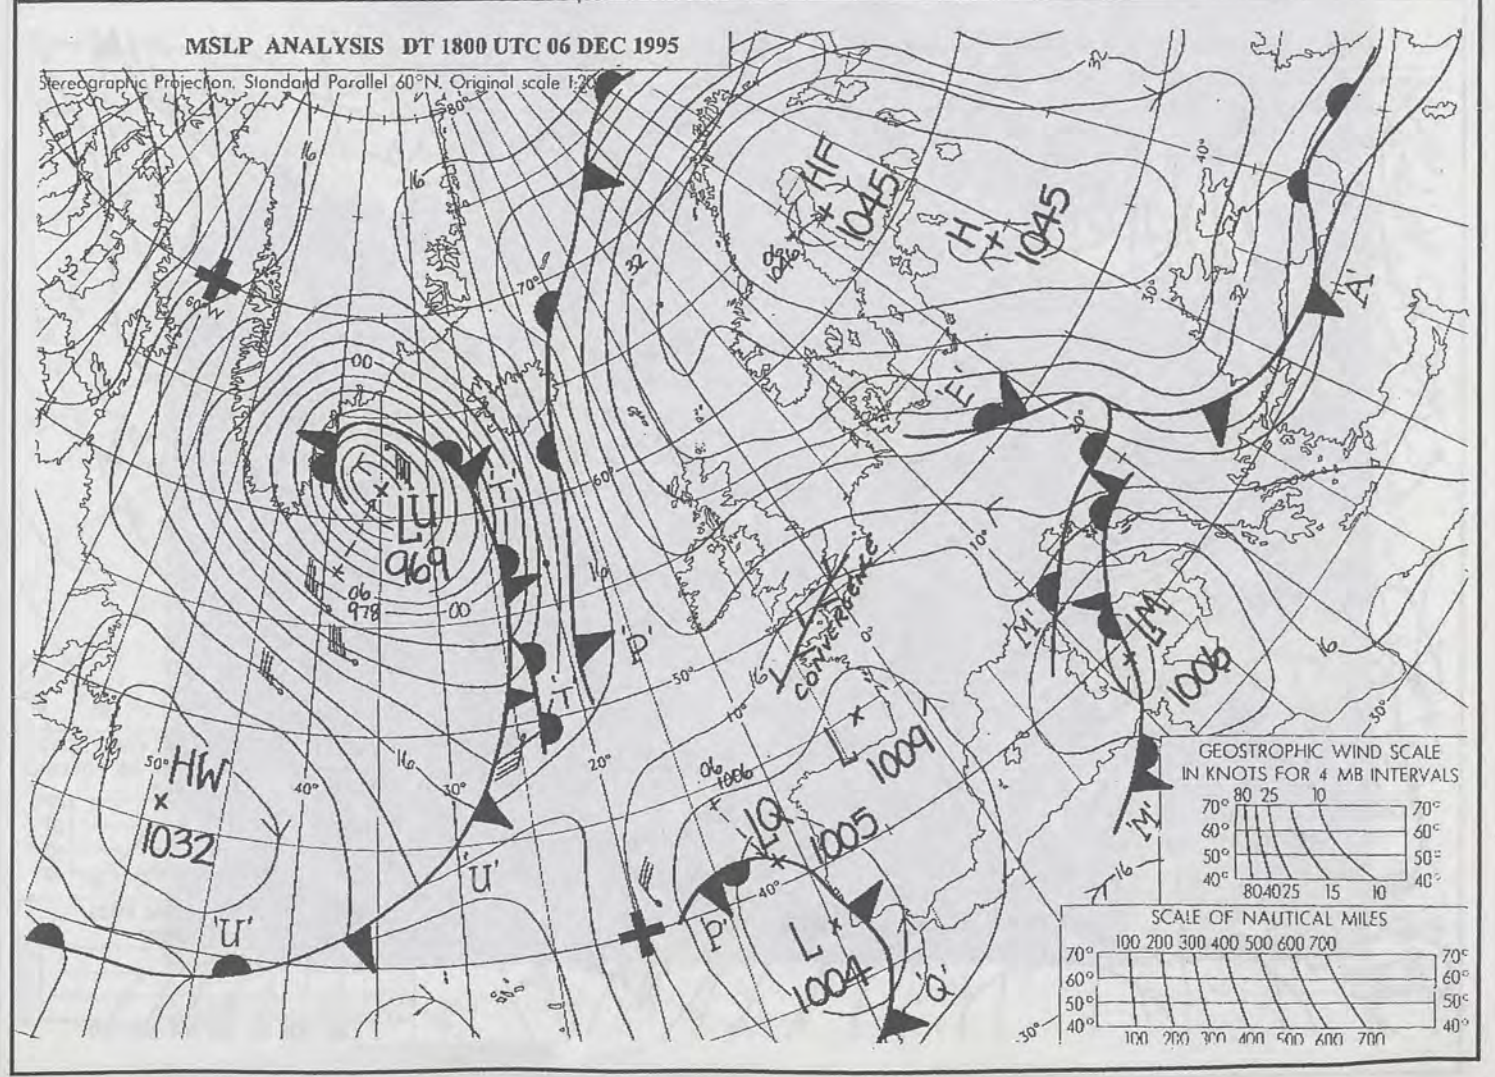 MSLP ANALYSIS DT 1800 UTC 06 DEC 1995
Stereographic Projection. Standard Parallel 60°N. Original scale 1:20
80°
32
16
16
HF
1045
H
1045
06
1046
40°
32
32
30°
'A'
60°W
70°
00
'E'
20°
LU
969
06
978
00
'T'
60°
10
10°
CONVERGENCE
'M'
LM
1006
16
'P'
0°
50°
16
'T'
10°
30°
HW
50°
1032
16
40°
30°
20°
06
1006
L
1009
LQ
1005
'U'
'U'
40°
'P'
L
1004
'Q'
'M'
16
30°
GEOSTROPHIC WIND SCALE
IN KNOTS FOR 4 MB INTERVALS
80 25 10
70° 70°
60° 60°
50° 50°
40° 40°
80 40 25 15 10
SCALE OF NAUTICAL MILES
100 200 300 400 500 600 700
70° 70°
60° 60°
50° 50°
40° 40°
100 200 300 400 500 600 700